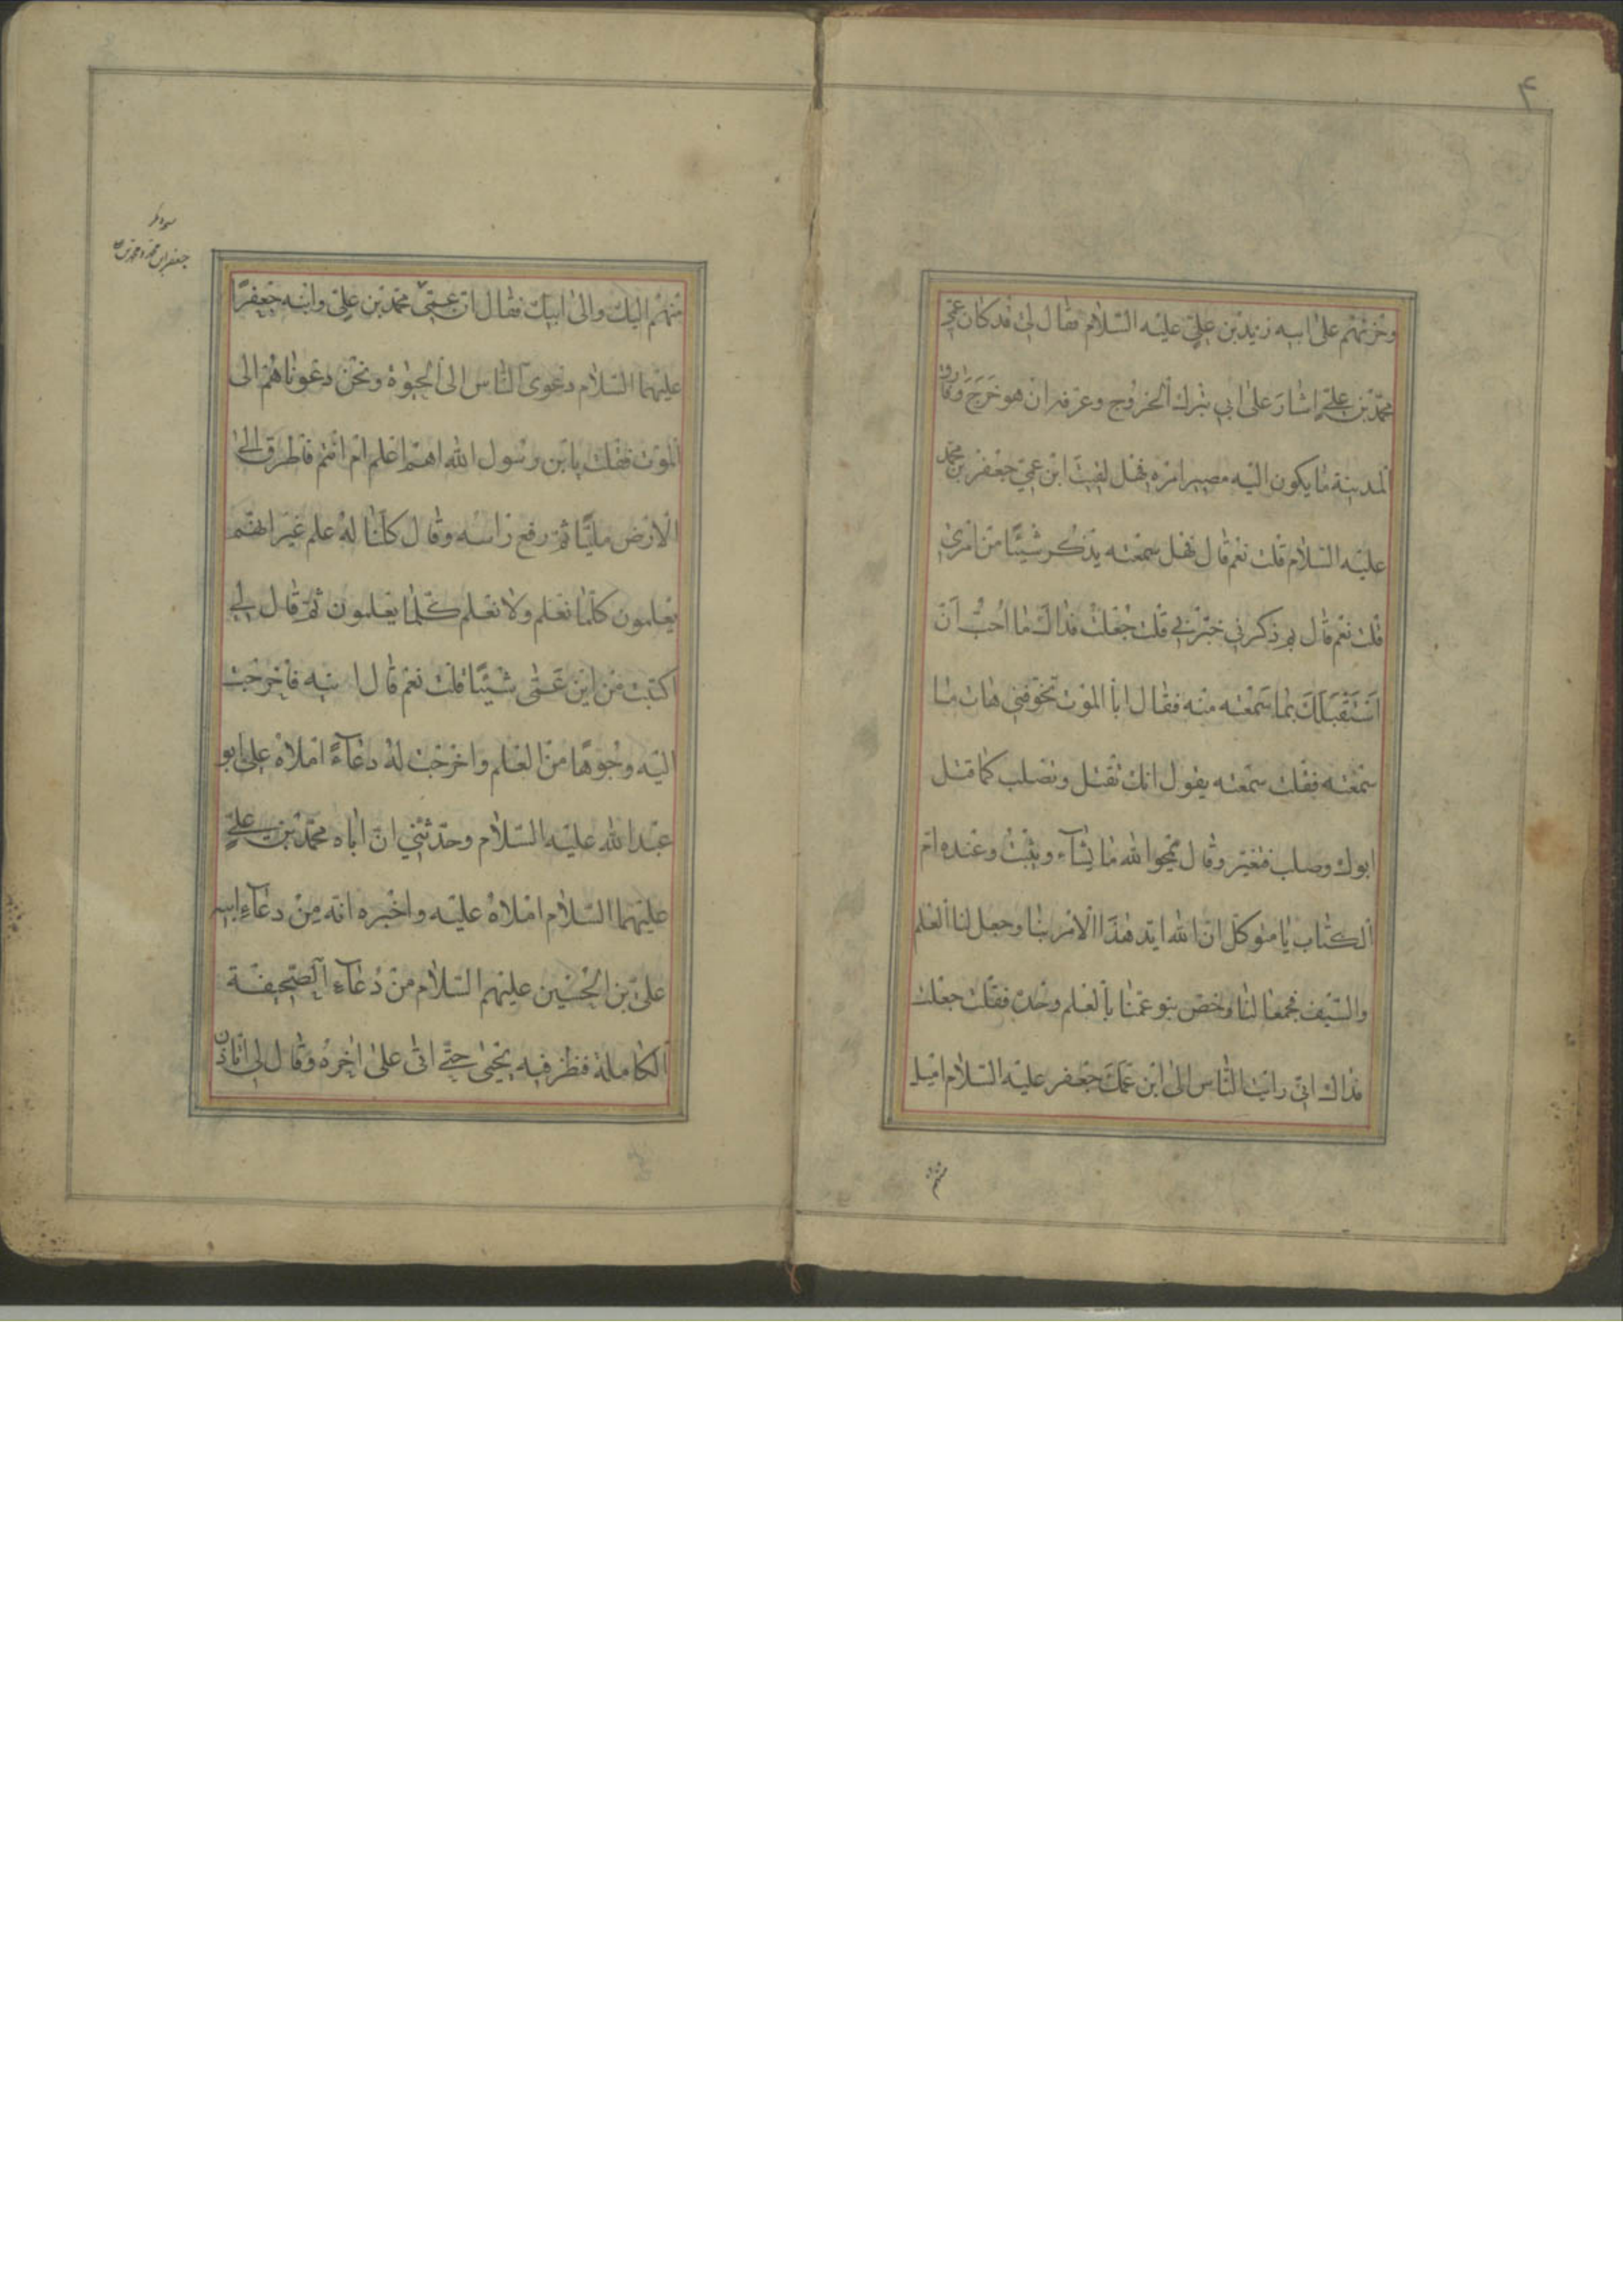 ٤
وحزنهم على ابيه زيد بن علي عليه السلام فقال لي قد كان عمي
محمد بن علي اشار على ابي بترك الخروج وعرفه ان هو خرج وفارق
المدينة ما يكون اليه مصير امره فهل لقيت ابن عمي جعفر بن محمد
عليه السلام قلت نعم قال فهل سمعته يذكر شيئا من امري
قلت نعم قال بم ذكرني خبرني قلت جعلت فداك ما احب ان
استقبلك بما سمعته منه فقال ابا الموت تخوفني هات ما
سمعته فقلت سمعته يقول انك تقتل وتصلب كما قتل
ابوك وصلب فتغير وقال يمحوا الله ما يشآء ويثبت وعنده ام
الكتاب يا متوكل ان الله ايد هذا الامر بنا وجعل لنا العلم
والسيف فجمعا لنا وخص بنو عمنا بالعلم وحده فقلت جعلت
فداك اني رايت الناس الى ابن عمك جعفر عليه السلام اميل
منهم اليك والى ابيك فقال ان عمي محمد بن علي وابنه جعفرا
عليهما السلام دعوى الناس الى الحيوة ونحن دعوناهم الى
الموت فقلت يا بن رسول الله اهم اعلم ام انتم فاطرق الى
الارض مليا ثم رفع راسه وقال كلنا له علم غير انهم
يعلمون كلما نعلم ولا نعلم كلما يعلمون ثم قال لي
اكتبت من ابن عمي شيئا قلت نعم قال ا نيه فاخرجت
اليه وجوها من العلم واخرجت له دعآء املاه علي ابو
عبد الله عليه السلام وحدثني ان اباه محمد بن علي
عليهما السلام املاه عليه واخبره انه من دعآء ابيه
علي بن الحسين عليهم السلام من دعآء الصحيفة
الكاملة فنظر فيه يحيى حتى اتى على اخره وقال لي اتاذن